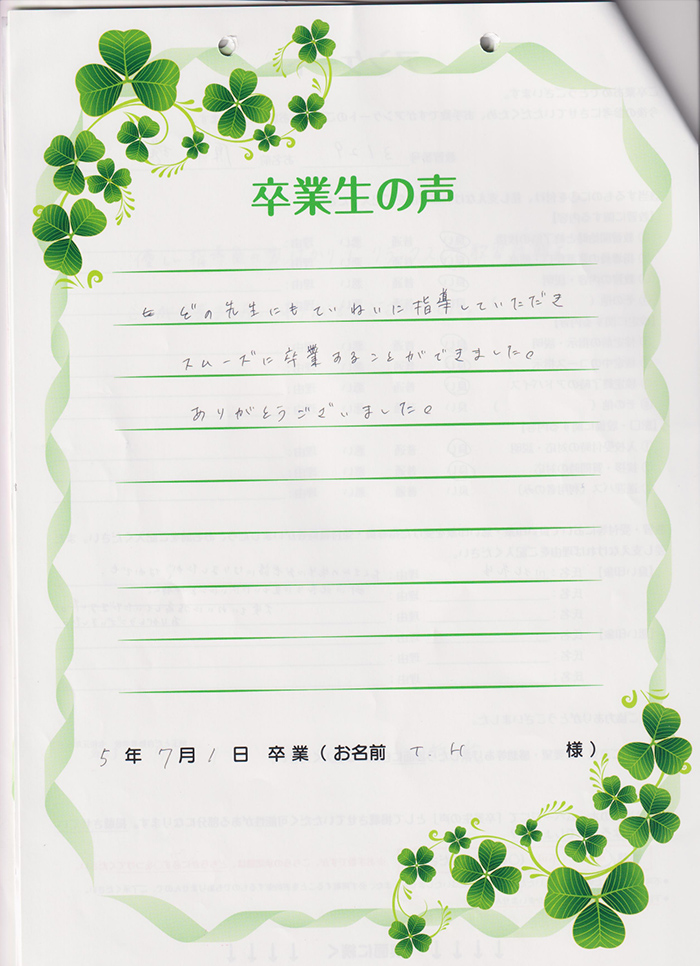 卒業生の声
どの先生にもていねいに指導していただき
スムーズに卒業することができました。
ありがとうございました。
5年7月1日 卒業(お名前 T.H 様)